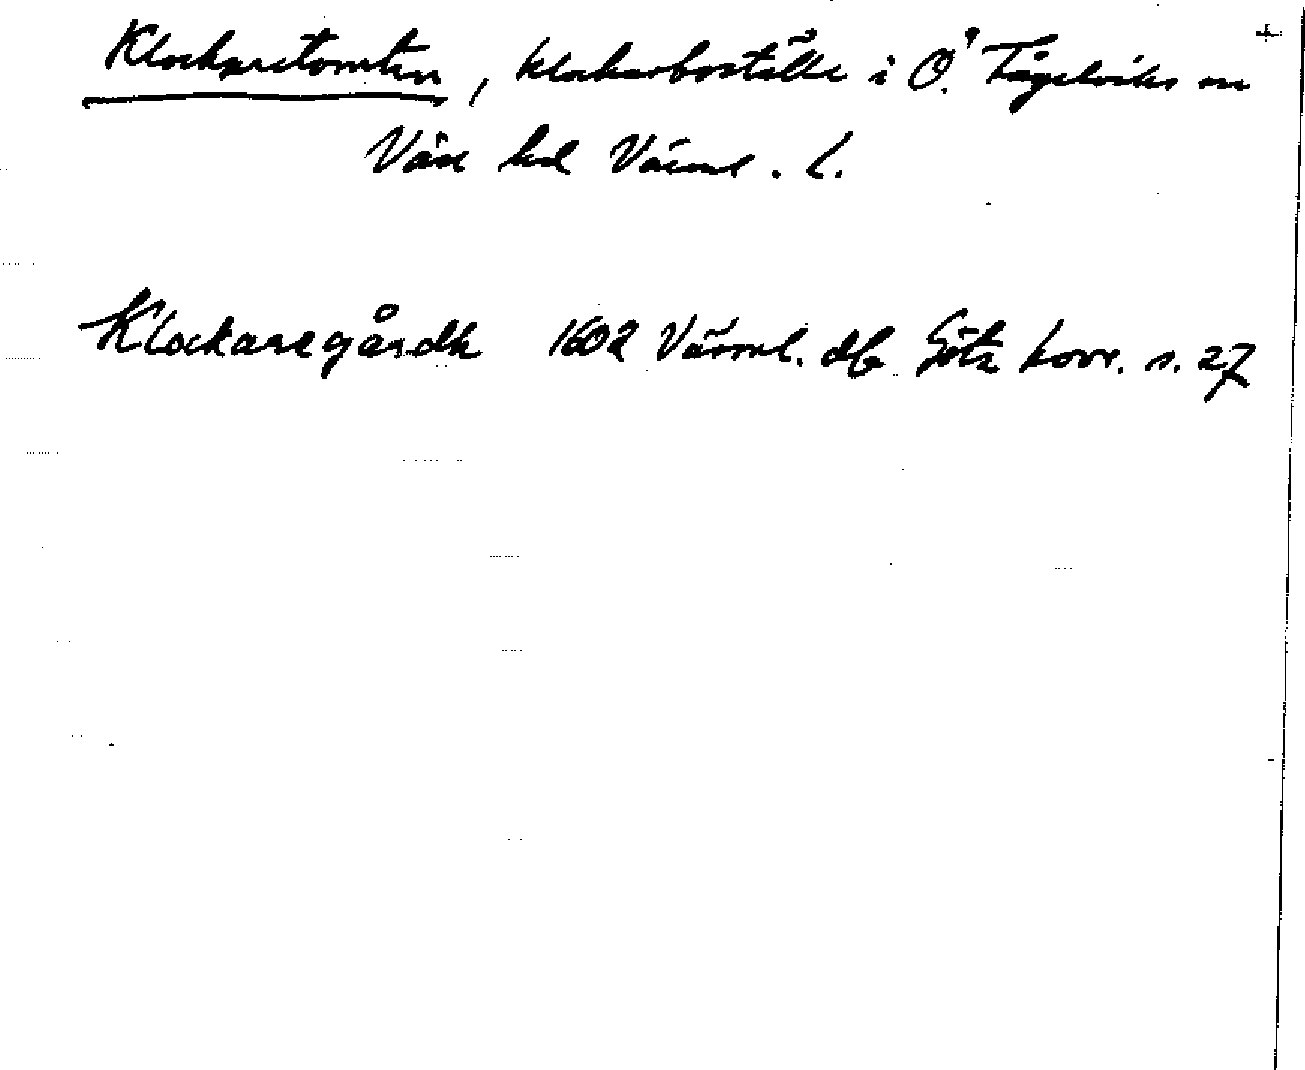 Klockaretomten, klockarboställe i Ö. Tågelviks sn
Väse hd Värml. l.
Klockaregårdh 1602 Värml. db Göta hovr. s. 27